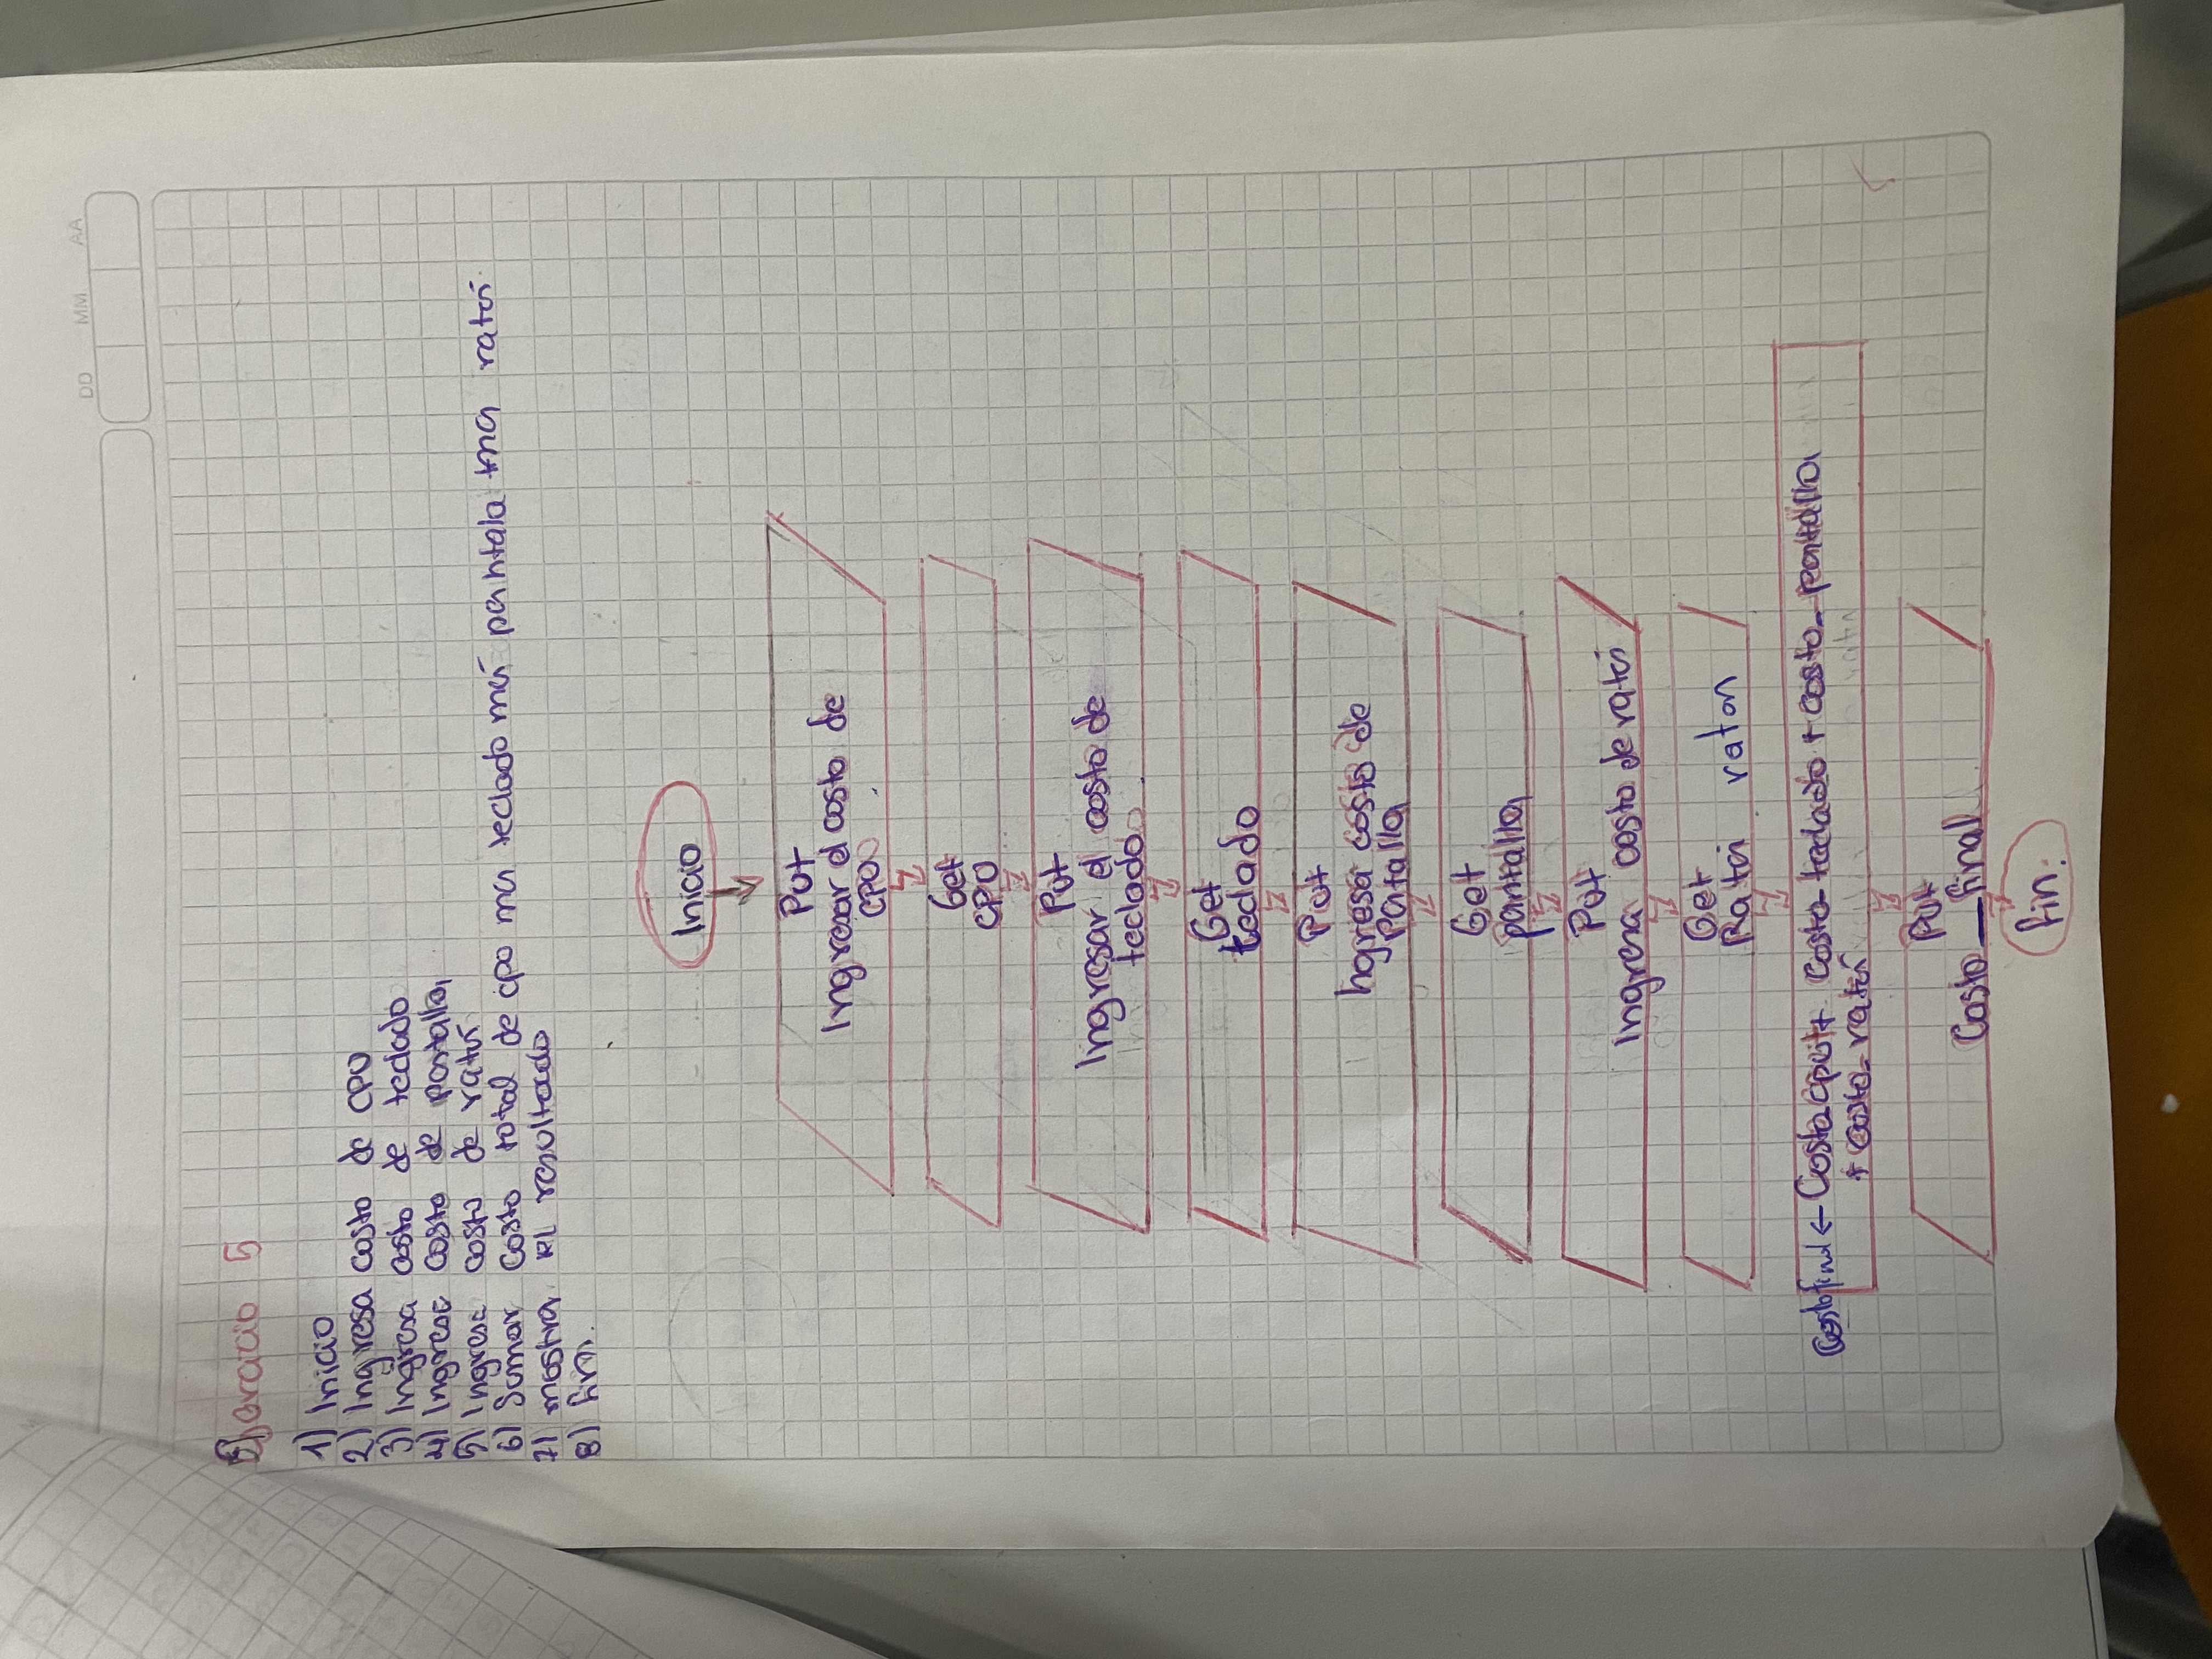 DD MM AA
Ejercicio 5
1) Inicio
2) Ingresa costo de CPU
3) Ingresa costo de teclado
4) Ingresa costo de pantalla
5) Ingresa costo de ratoi
6) Sumar costo total de cpu ma teclado mai pantala ma ratoi
7) mostra el resultado
8) fin.
Inicio
Put
Ingresar el costo de
CPU
Get
CPU
Put
Ingresar el costo de
teclado
Get
teclado
Put
Ingresa costo de
Patalla
Get
pantalla
Put
Ingresa costo de ratoi
Get
Ratoi raton
Costofinal ← Costo cpu + Costo_teclado + costo_pantalla
+ costo_ratoi
Put
Costo_final
fin.